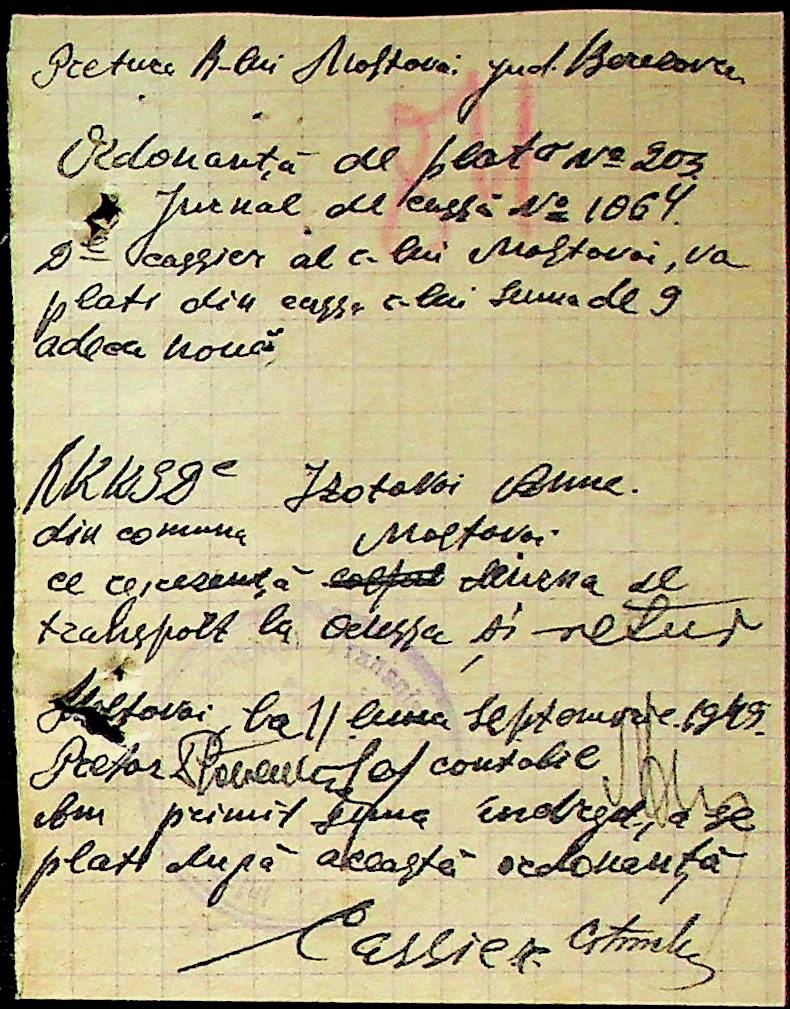 Pretura R-lui Mostovoi jud. Berezovca
Ordonanță de plată № 203
Jurnal de cassă № 1064
Dl cassier al c-lui Mostovoi, va
plati din cassa c-lui suma de 9
adeca nouă
Izotovoi Anna.
din comuna Mostovoi
ce diurna de
transport la Odessa și retur
Mostovoi, la 11 luna Septomvrie 1943.
Pretor Șef contabil
Am primit suma indreptata se
plati după aceasță ordonanță
Cassier